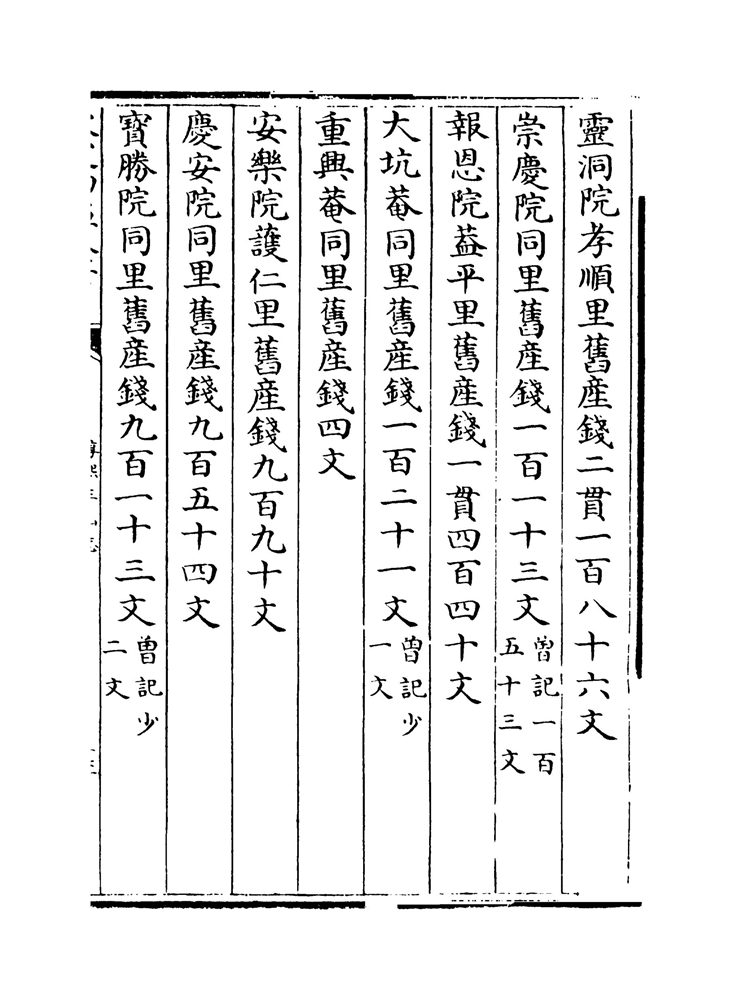 靈洞院孝順里舊産錢二貫一百八十六文
崇慶院同里舊産錢一百一十三文曽記一百五十三文
報恩院葢平里舊産錢一貫四百四十文
大坑菴同里舊産錢一百二十一文曽記少一文
重興菴同里舊産錢四文
安樂院護仁里舊産錢九百九十文
慶安院同里舊産錢九百五十四文
寳勝院同里舊産錢九百一十三文曽記少二文